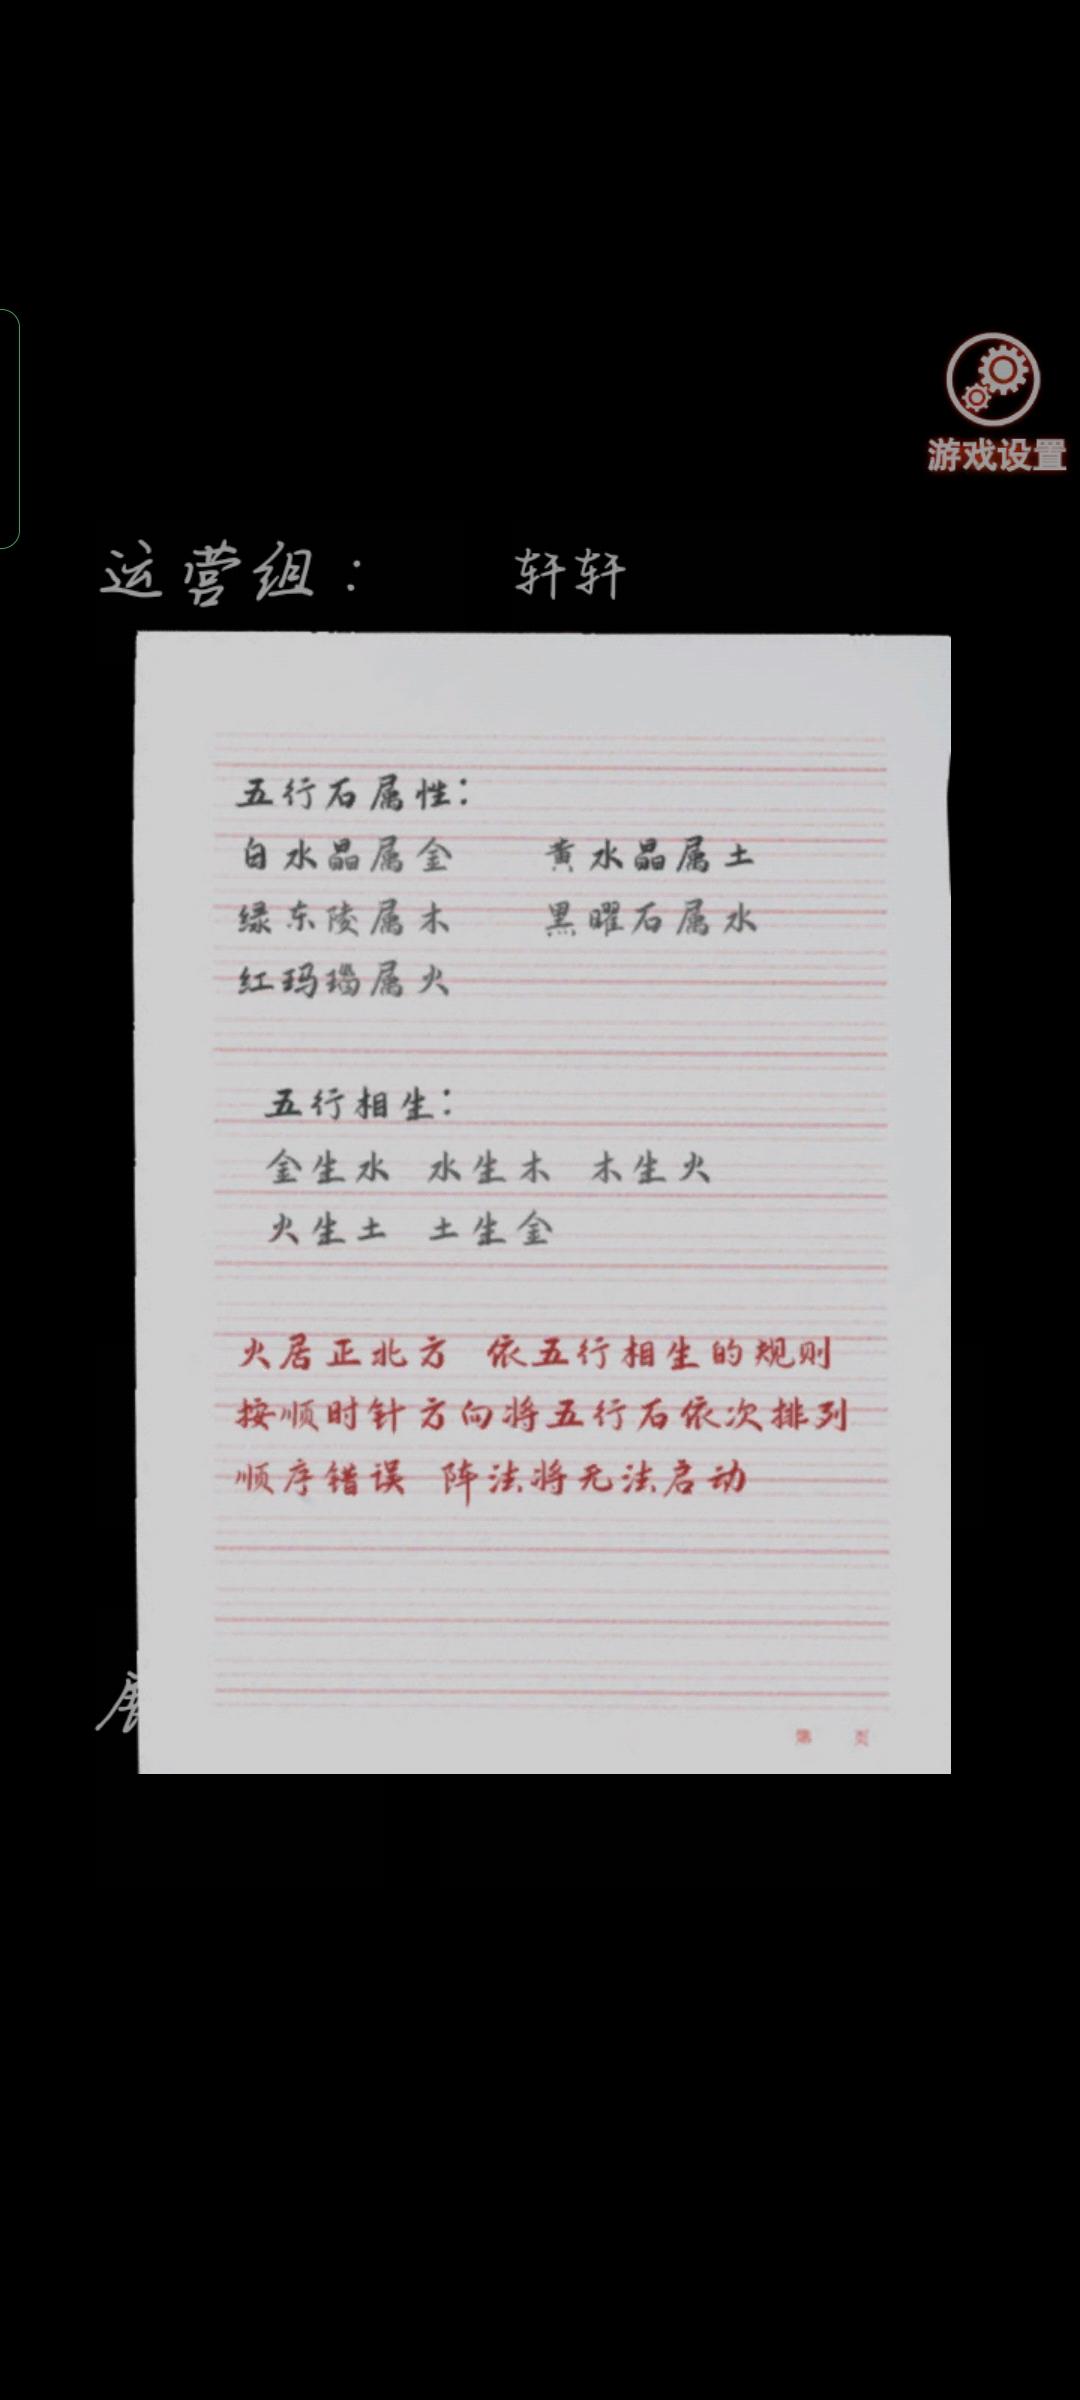 游戏设置
运营组： 轩轩
五行石属性：
白水晶属金 黄水晶属土
绿东陵属木 黑曜石属水
红玛瑙属火
五行相生：
金生水 水生木 木生火
火生土 土生金
火居正北方 依五行相生的规则
按顺时针方向将五行石依次排列
顺序错误 阵法将无法启动
第 页